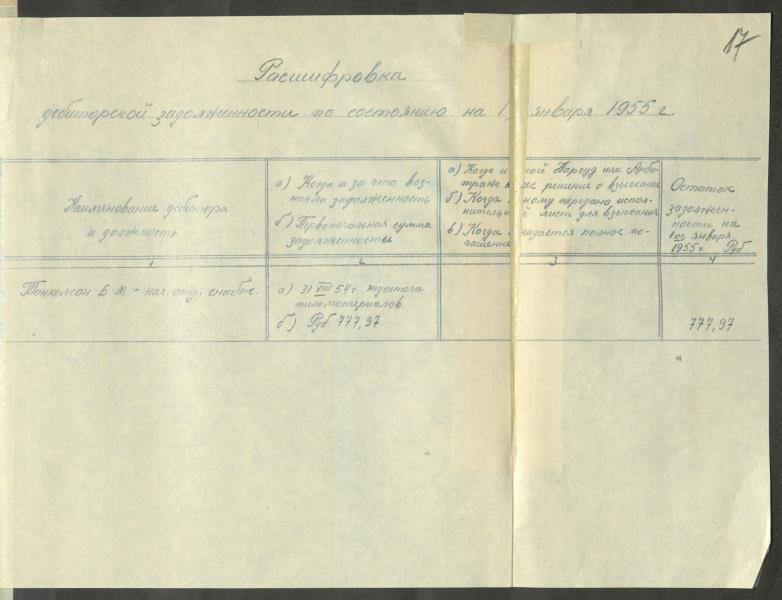 17
Расшифровка
дебиторской задолженности по состоянию на 1 января 1955 г.
Наименование дебитора
и должность
а) Когда и за что воз-
никла задолженность
б) Первоначальная сумма
задолженности
а) Когда и ной Нарсуд или Арби-
траж ес решение о взыскании
б) Когда кому передано испол-
нительн й лист для взыскания
в) Когда идается полное по-
гашение
Остаток
задолжен-
ности на
1ое января
1955 г. Руб
1 2 3 4
Тонкелсон Б. М. - нач. отд. снабж.
а) 31 VIII 54 г. недостача
пиломатериалов
б) Руб. 777,97
777,97